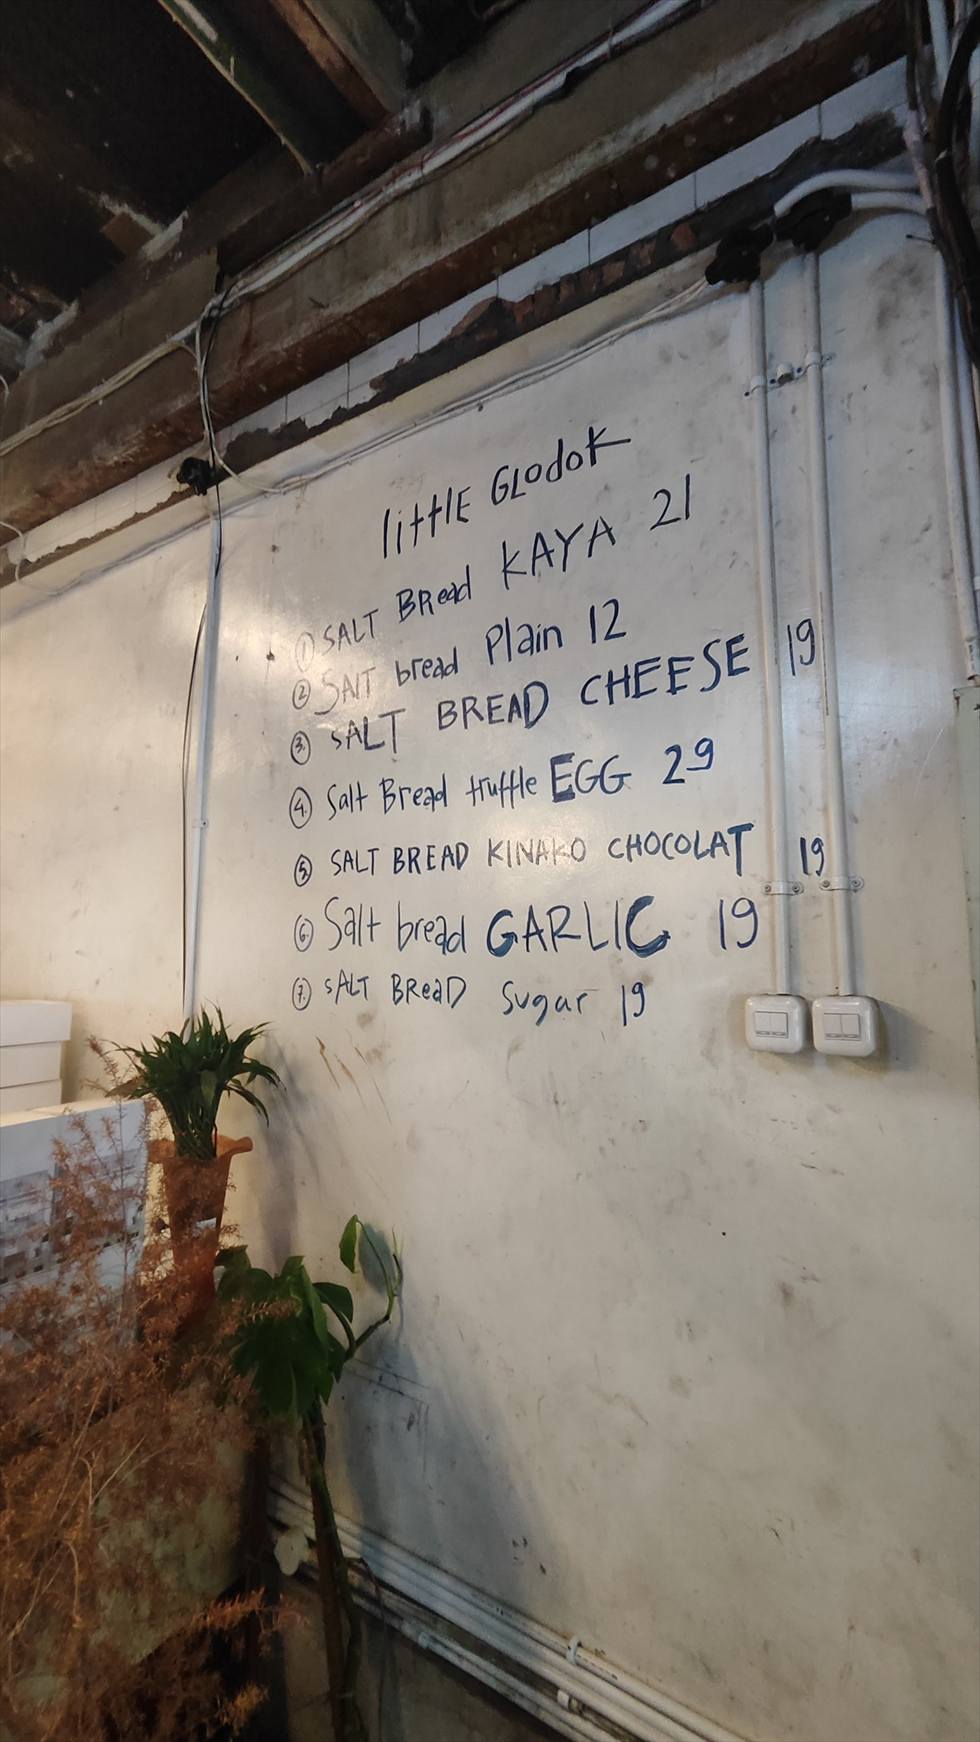 little GLodoK
① SALT BRead KAYA 21
② SAlT bread Plain 12
③ SALT BREAD CHEESE 19
④ Salt Bread truffle EGG 29
⑤ SALT BREAD KINAKO CHOCOLAT 19
⑥ Salt bread GARLIC 19
⑦ SALT BReaD Sugar 19